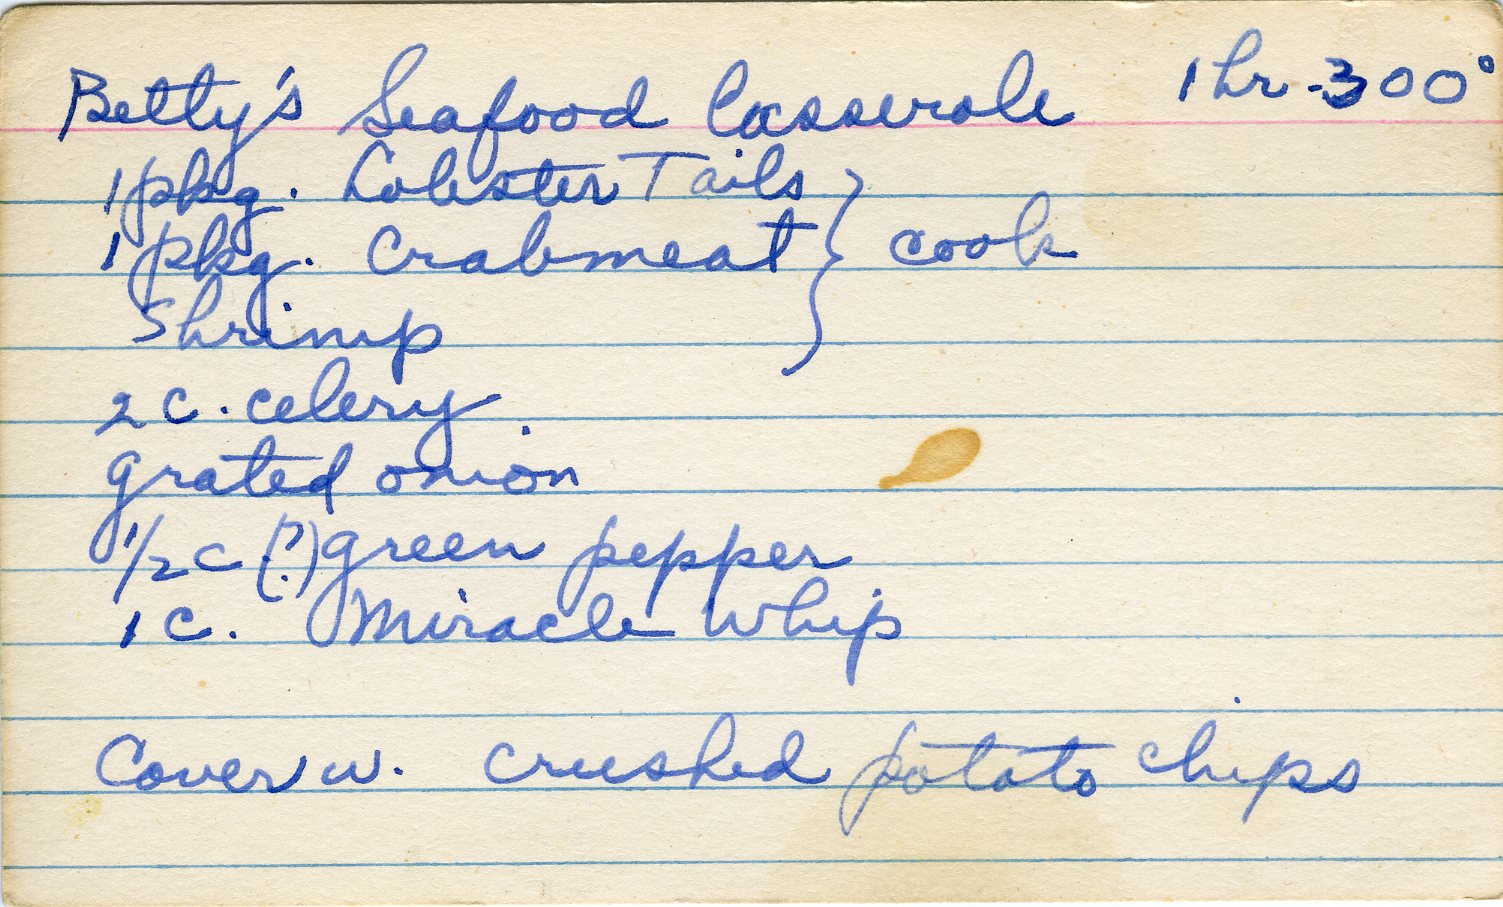 Betty's Seafood Casserole 1 hr - 300°
1 pkg. Lobster Tails
1 pkg. Crabmeat } cook
Shrimp
2 c. celery
grated onion
1/2 c (?) green pepper
1 c. Miracle Whip
Cover w. crushed potato chips